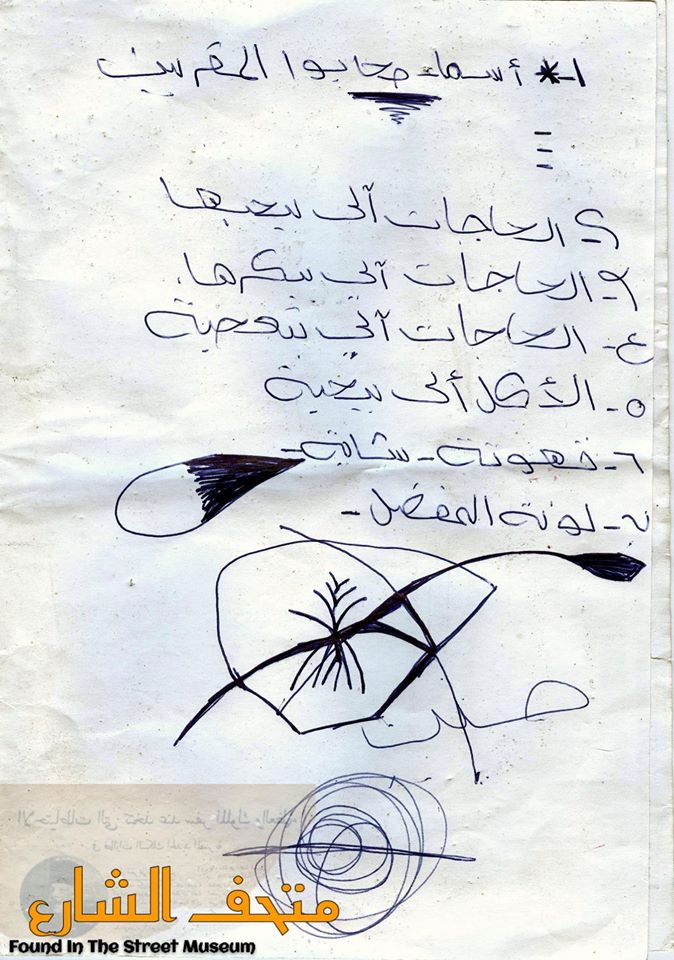 ١* أسماء صحابوا المقربين
٢ الحاجات آلى بيحبها
٣- الحاجات آلي بيكرها.
٤- الحاجات آلي بتعجبة
٥- الأكل ألى بيحبة
٦- قهوتة - شاية -
٧- لونة المفضل -
متحف الشارع
Found In The Street Museum